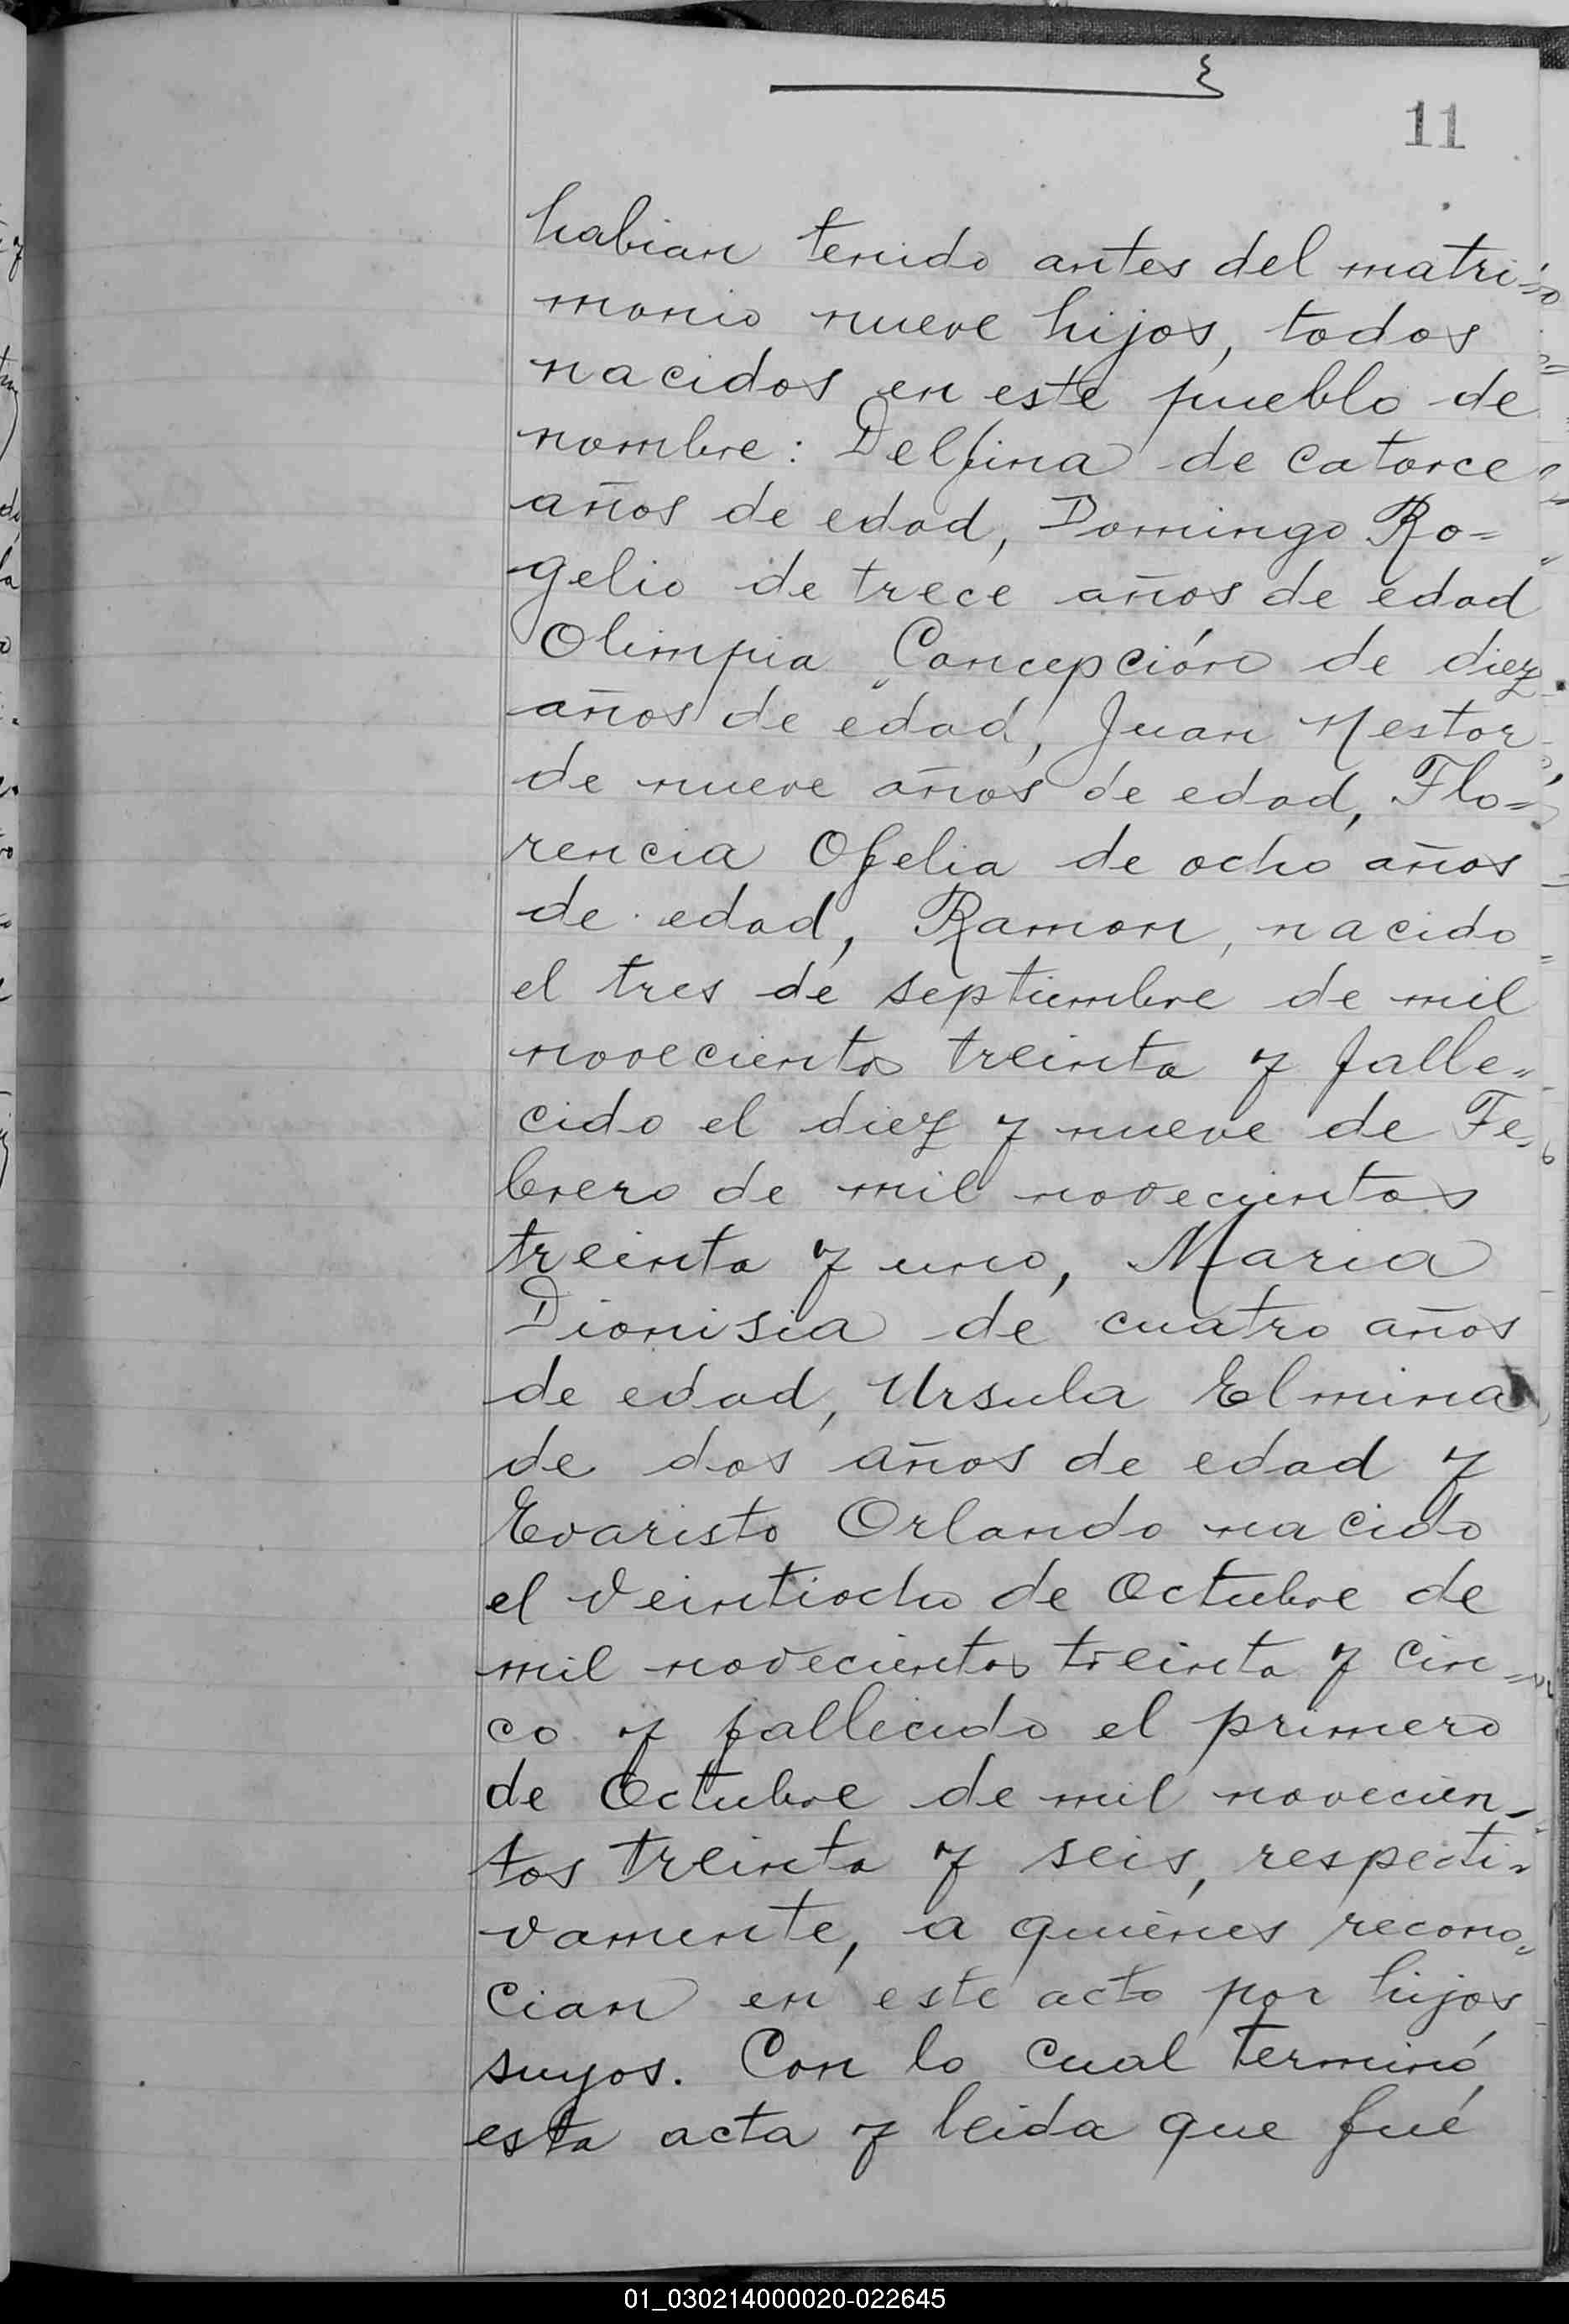 11
habian tenido antes del matri-
monio nueve hijos, todos
nacidos en este pueblo de
nombre: Delfina de catorce
años de edad, Domingo Ro=
gelio de trece años de edad
Olimpia Concepción de diez
años de edad, Juan Nestor
de nueve años de edad, Flo=
rencia Ofelia de ocho años
de edad, Ramon, nacido
el tres de septiembre de mil
novecientos treinta y falle=
cido el diez y nueve de Fe=
brero de mil novecientos
treinta y uno, Maria
Dionisia de cuatro años
de edad, Ursula Elmina
de dos años de edad y
Evaristo Orlando nacido
el veintiocho de Octubre de
mil novecientos treinta y cin=
co y fallecido el primero
de Octubre de mil novecien=
tos treinta y seis, respecti=
vamente, a quienes recono=
cian en este acto por hijos
suyos. Con lo cual terminó
esta acta y leida que fué
01_030214000020-022645